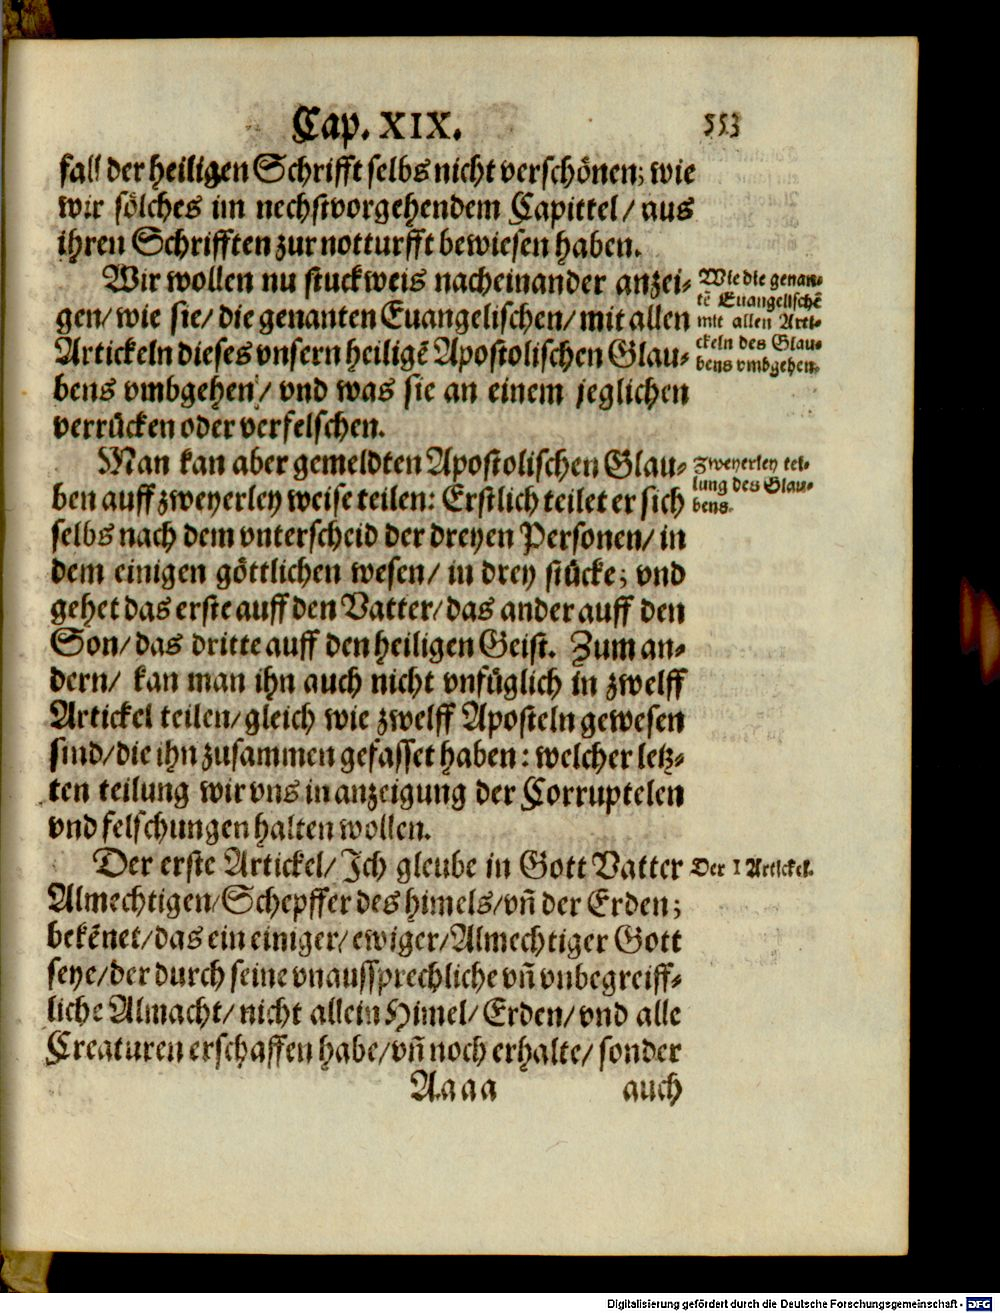 Cap. XIX. 553
fall der heiligen Schrifft selbs nicht verschönen; wie
wir sölches im nechstvorgehendem Capittel/ aus
ihren Schrifften zur notturfft bewiesen haben.
Wir wollen nu stuckweis nacheinander anzei⸗
gen/ wie sie/ die genanten Euangelischen/ mit allen
Artickeln dieses vnsern heiligē Apostolischen Glau⸗
bens vmbgehen/ vnd was sie an einem jeglichen
verrücken oder verfelschen.
Wie die genan⸗
tē Euangelischē
mit allen Arti⸗
ckeln des Glau⸗
bens vmbgehen.
Man kan aber gemeldten Apostolischen Glau⸗
ben auff zweyerley weise teilen: Erstlich teilet er sich
selbs nach dem vnterscheid der dreyen Personen/ in
dem einigen göttlichen wesen/ in drey stücke; vnd
gehet das erste auff den Vatter/ das ander auff den
Son/ das dritte auff den heiligen Geist. Zum an⸗
dern/ kan man ihn auch nicht vnfüglich in zwelff
Artickel teilen/ gleich wie zwelff Aposteln gewesen
sind/ die ihn zusammen gefasset haben: welcher letz⸗
ten teilung wir vns in anzeigung der Corruptelen
vnd felschungen halten wollen.
Zweyerley tei⸗
lung des Glau⸗
bens.
Der erste Artickel/ Ich gleube in Gott Vatter
Almechtigen/ Schepffer des himels/ vñ der Erden;
bekēnet/ das ein einiger/ ewiger/ Almechtiger Gott
seye/ der durch seine vnaussprechliche vñ vnbegreiff⸗
liche Almacht/ nicht allein Himel/ Erden/ vnd alle
Creaturen erschaffen habe/ vñ noch erhalte/ sonder
Der 1 Artickel.
Aaaa auch
Digitalisierung gefördert durch die Deutsche Forschungsgemeinschaft - DFG